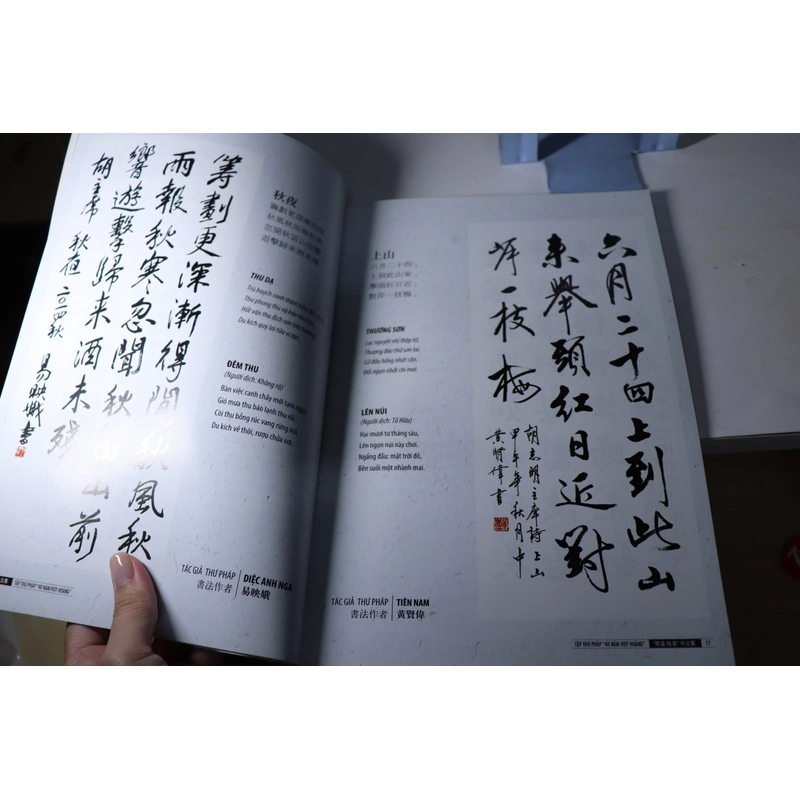 籌劃更深漸得閒秋風秋
雨報秋寒忽聞秋笛山前
響遊擊歸來酒未殘
胡席 秋夜 二〇一四秋 易映娥書
秋夜
籌劃更深漸得閒,
秋風秋雨報秋寒。
忽聞秋笛山前響,
遊擊歸來酒未殘。
THU DẠ
Trù hoạch canh thâm tiệm đắc nhàn,
Thu phong thu vũ báo thu hàn.
Hốt văn thu địch sơn tiền hưởng,
Du kích quy lai tửu vị tàn.
ĐÊM THU
(Người dịch: Không rõ)
Bàn việc canh chầy mới tạm ngơi,
Gió mưa thu báo lạnh thu rồi.
Còi thu bỗng rúc vang rừng núi,
Du kích về thôi, rượu chửa vơi.
TÁC GIẢ THƯ PHÁP
書法作者
DIỆC ANH NGA
易映娥
TẬP THƯ PHÁP "40 NĂM HUY HOÀNG"
上山
六月二十四,
上到此山來,
舉頭紅日近,
對岸一枝梅。
THƯỚNG SƠN
Lục nguyệt nhị thập tứ,
Thướng đáo thử sơn lai.
Cử đầu hồng nhật cận,
Đối ngạn nhất chi mai.
LÊN NÚI
(Người dịch: Tố Hữu)
Hai mươi tư tháng sáu,
Lên ngọn núi này chơi.
Ngẩng đầu: mặt trời đỏ,
Bên suối một nhành mai.
TÁC GIẢ THƯ PHÁP
書法作者
TIÊN NAM
黃賢偉
六月二十四上到此山
來舉頭紅日近對
岸一枝梅
胡志明主席詩上山
甲午年秋月中
黃賢偉書
TẬP THƯ PHÁP "40 NĂM HUY HOÀNG"